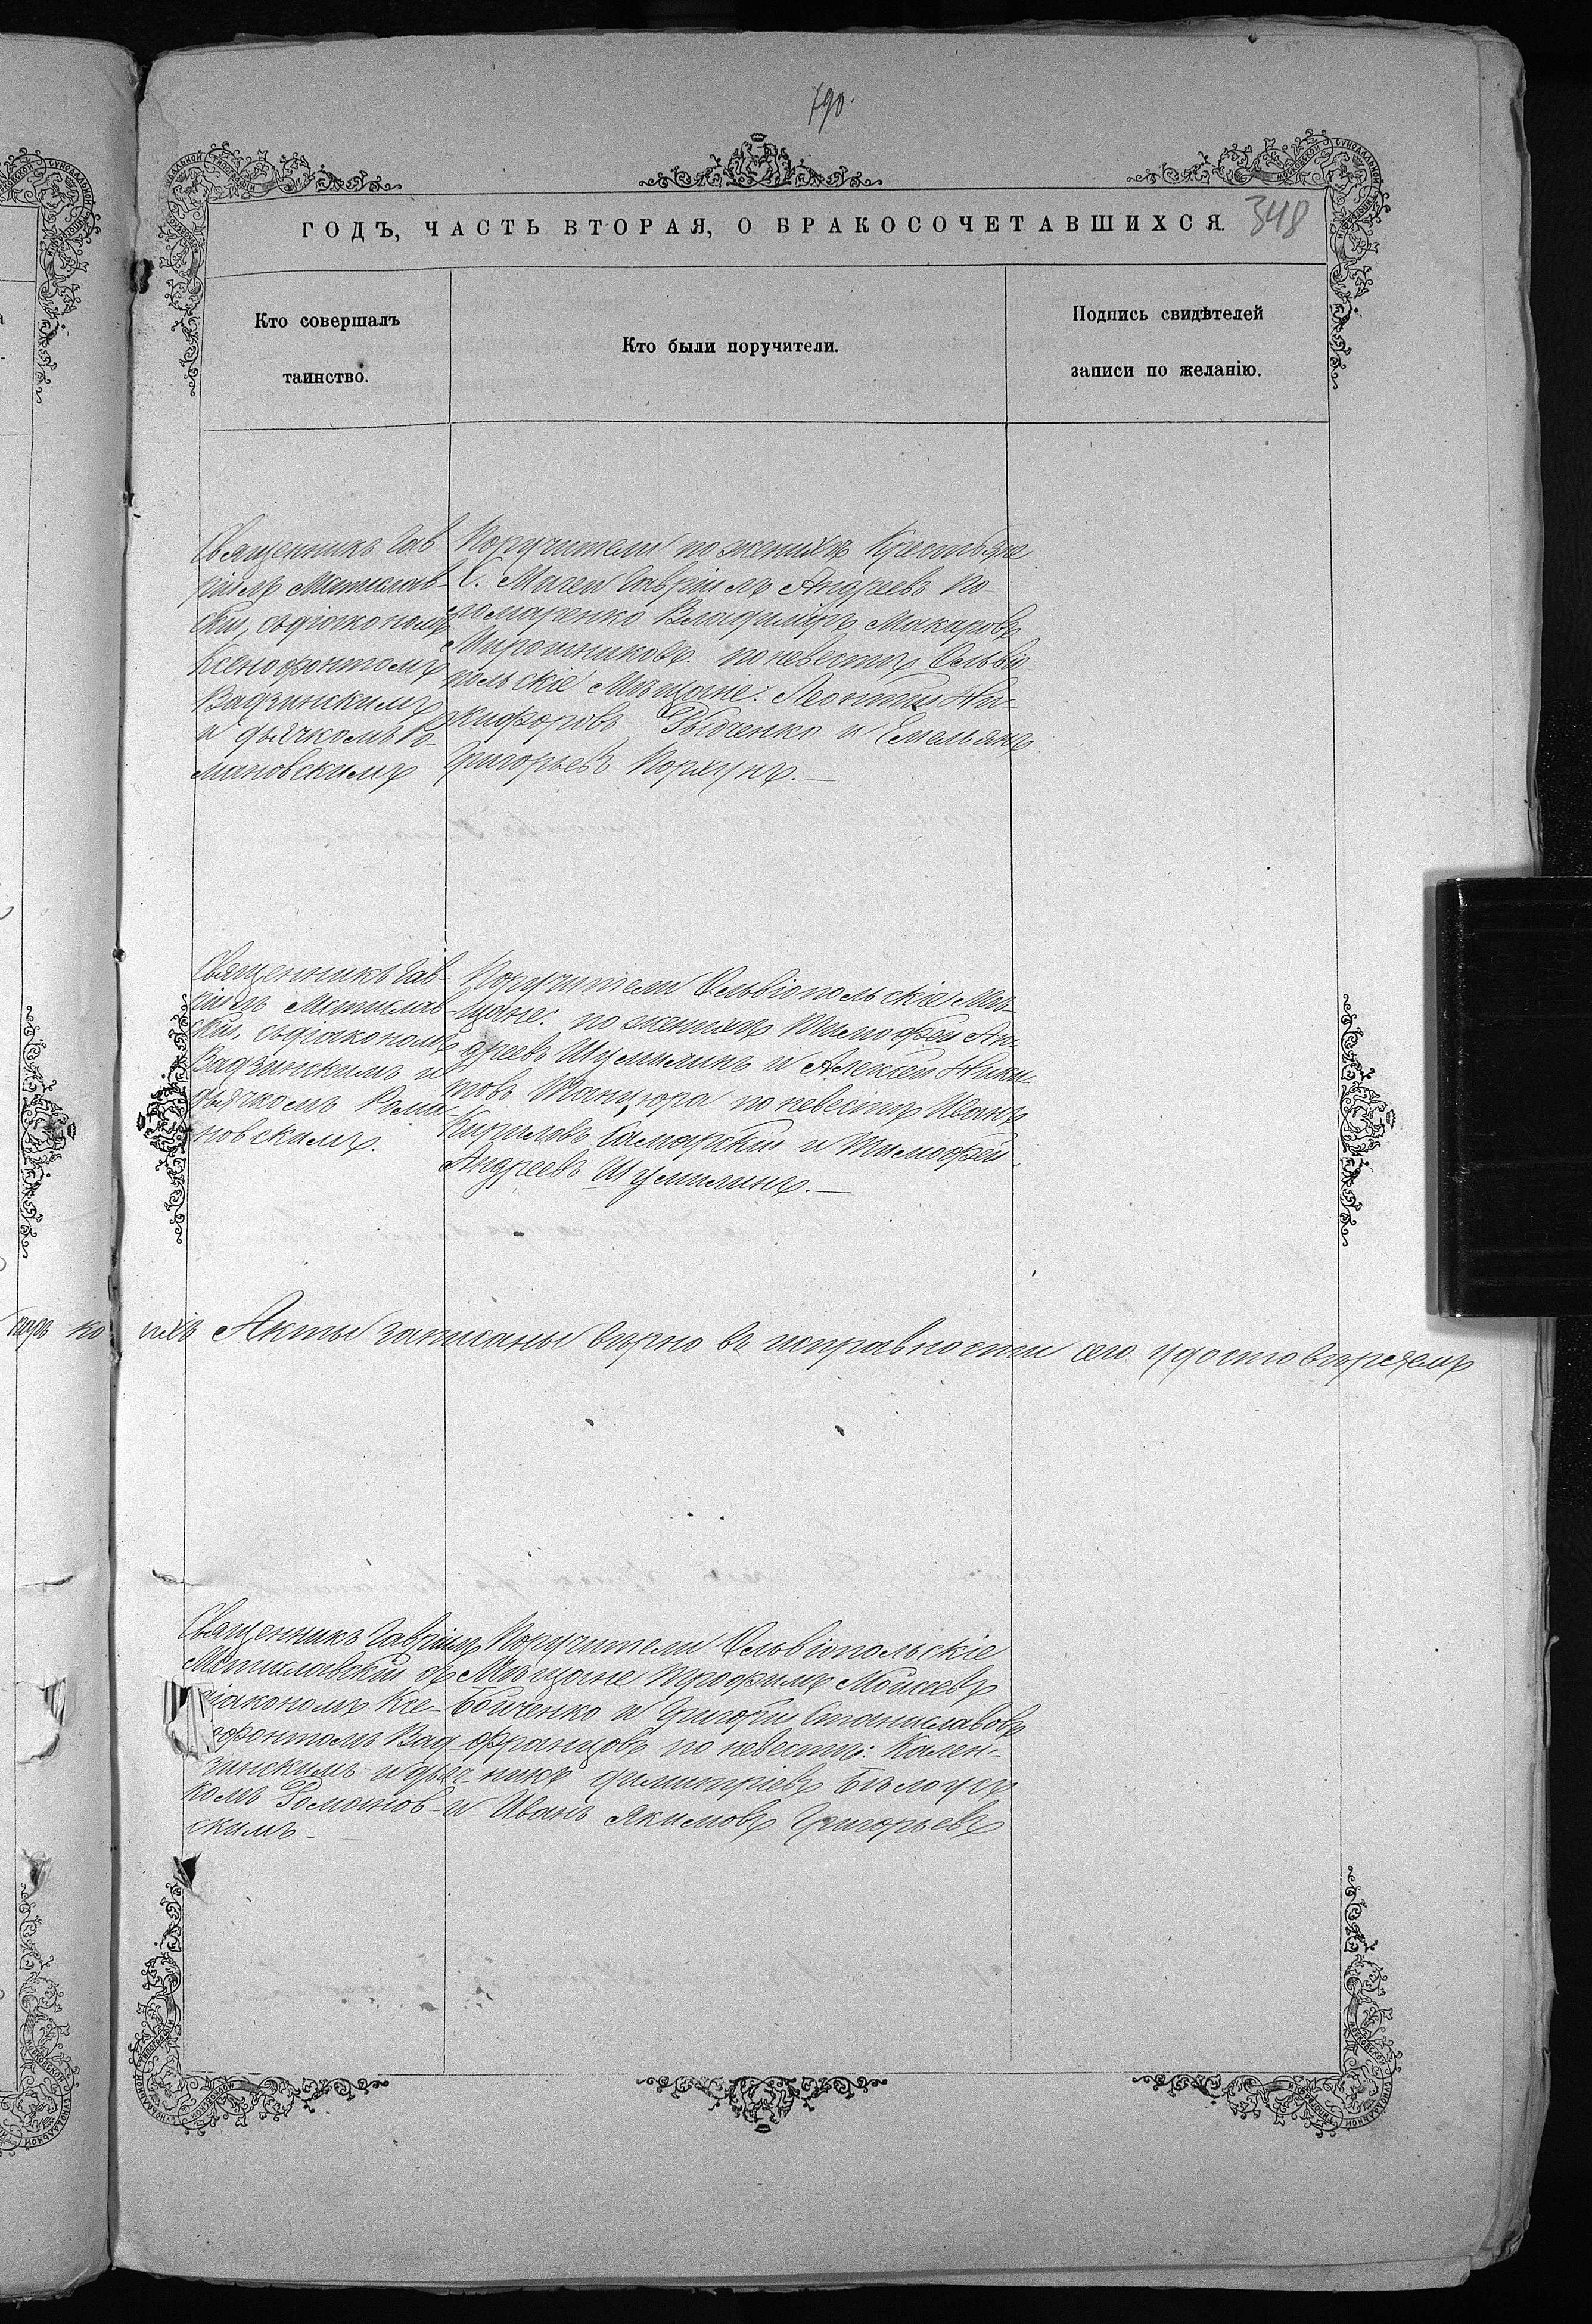 790.
348
ГОДЪ, ЧАСТЬ ВТОРАЯ, О БРАКОСОЧЕТАВШИХСЯ.
Кто совершалъ
таинство.
Кто были поручители.
Подпись свидѣтелей
записи по желанію.
Священникъ Гав
ріилъ Мстислав-
скій, съ діакономъ
Ксенофонтомъ
Вадзинскимъ
и дьячкомъ Ро-
мановскимъ
Поручители по женихѣ Крестьяне
С. Мигеи Гавріилъ Андреевъ По-
номаренко Владиміръ Макаровъ
Мирошниковъ. по невестѣ Ольвіо
польскіе Мѣщане: Леонтій Ни-
кифоровъ Рябченко и Емельянъ
Григорьевъ Коржунъ.—
Священникъ Гав-
ріилъ Мстислав-
скій, съ діакономъ
Вадзинскимъ и
дьячкомъ Рома-
новскимъ.
Поручители Ольвіопольскіе Мѣ-
щане: по женихѣ Тимофей Ан-
дреевъ Шумилинъ и Алексѣй Ники-
товъ Танцюра по невестѣ Иванъ
Кириловъ Самарскій и Тимофей
Андреевъ Шумилинъ.—
ихъ Акты записаны вѣрно въ исправности сего удостовѣряемъ
Священникъ Гавріилъ
Мстиславскій съ
діакономъ Ксе-
нофонтомъ Вад-
зинскимъ и дьяч-
комъ Романов-
скимъ—
Поручители Ольвіопольскіе
Мѣщане Трофимъ Моисеевъ
Бойченко и Григорій Станиславовъ
Францовъ по невестѣ: Кален-
никъ Димитріевъ Бѣлоусъ
и Иванъ Якимовъ Григорьевъ